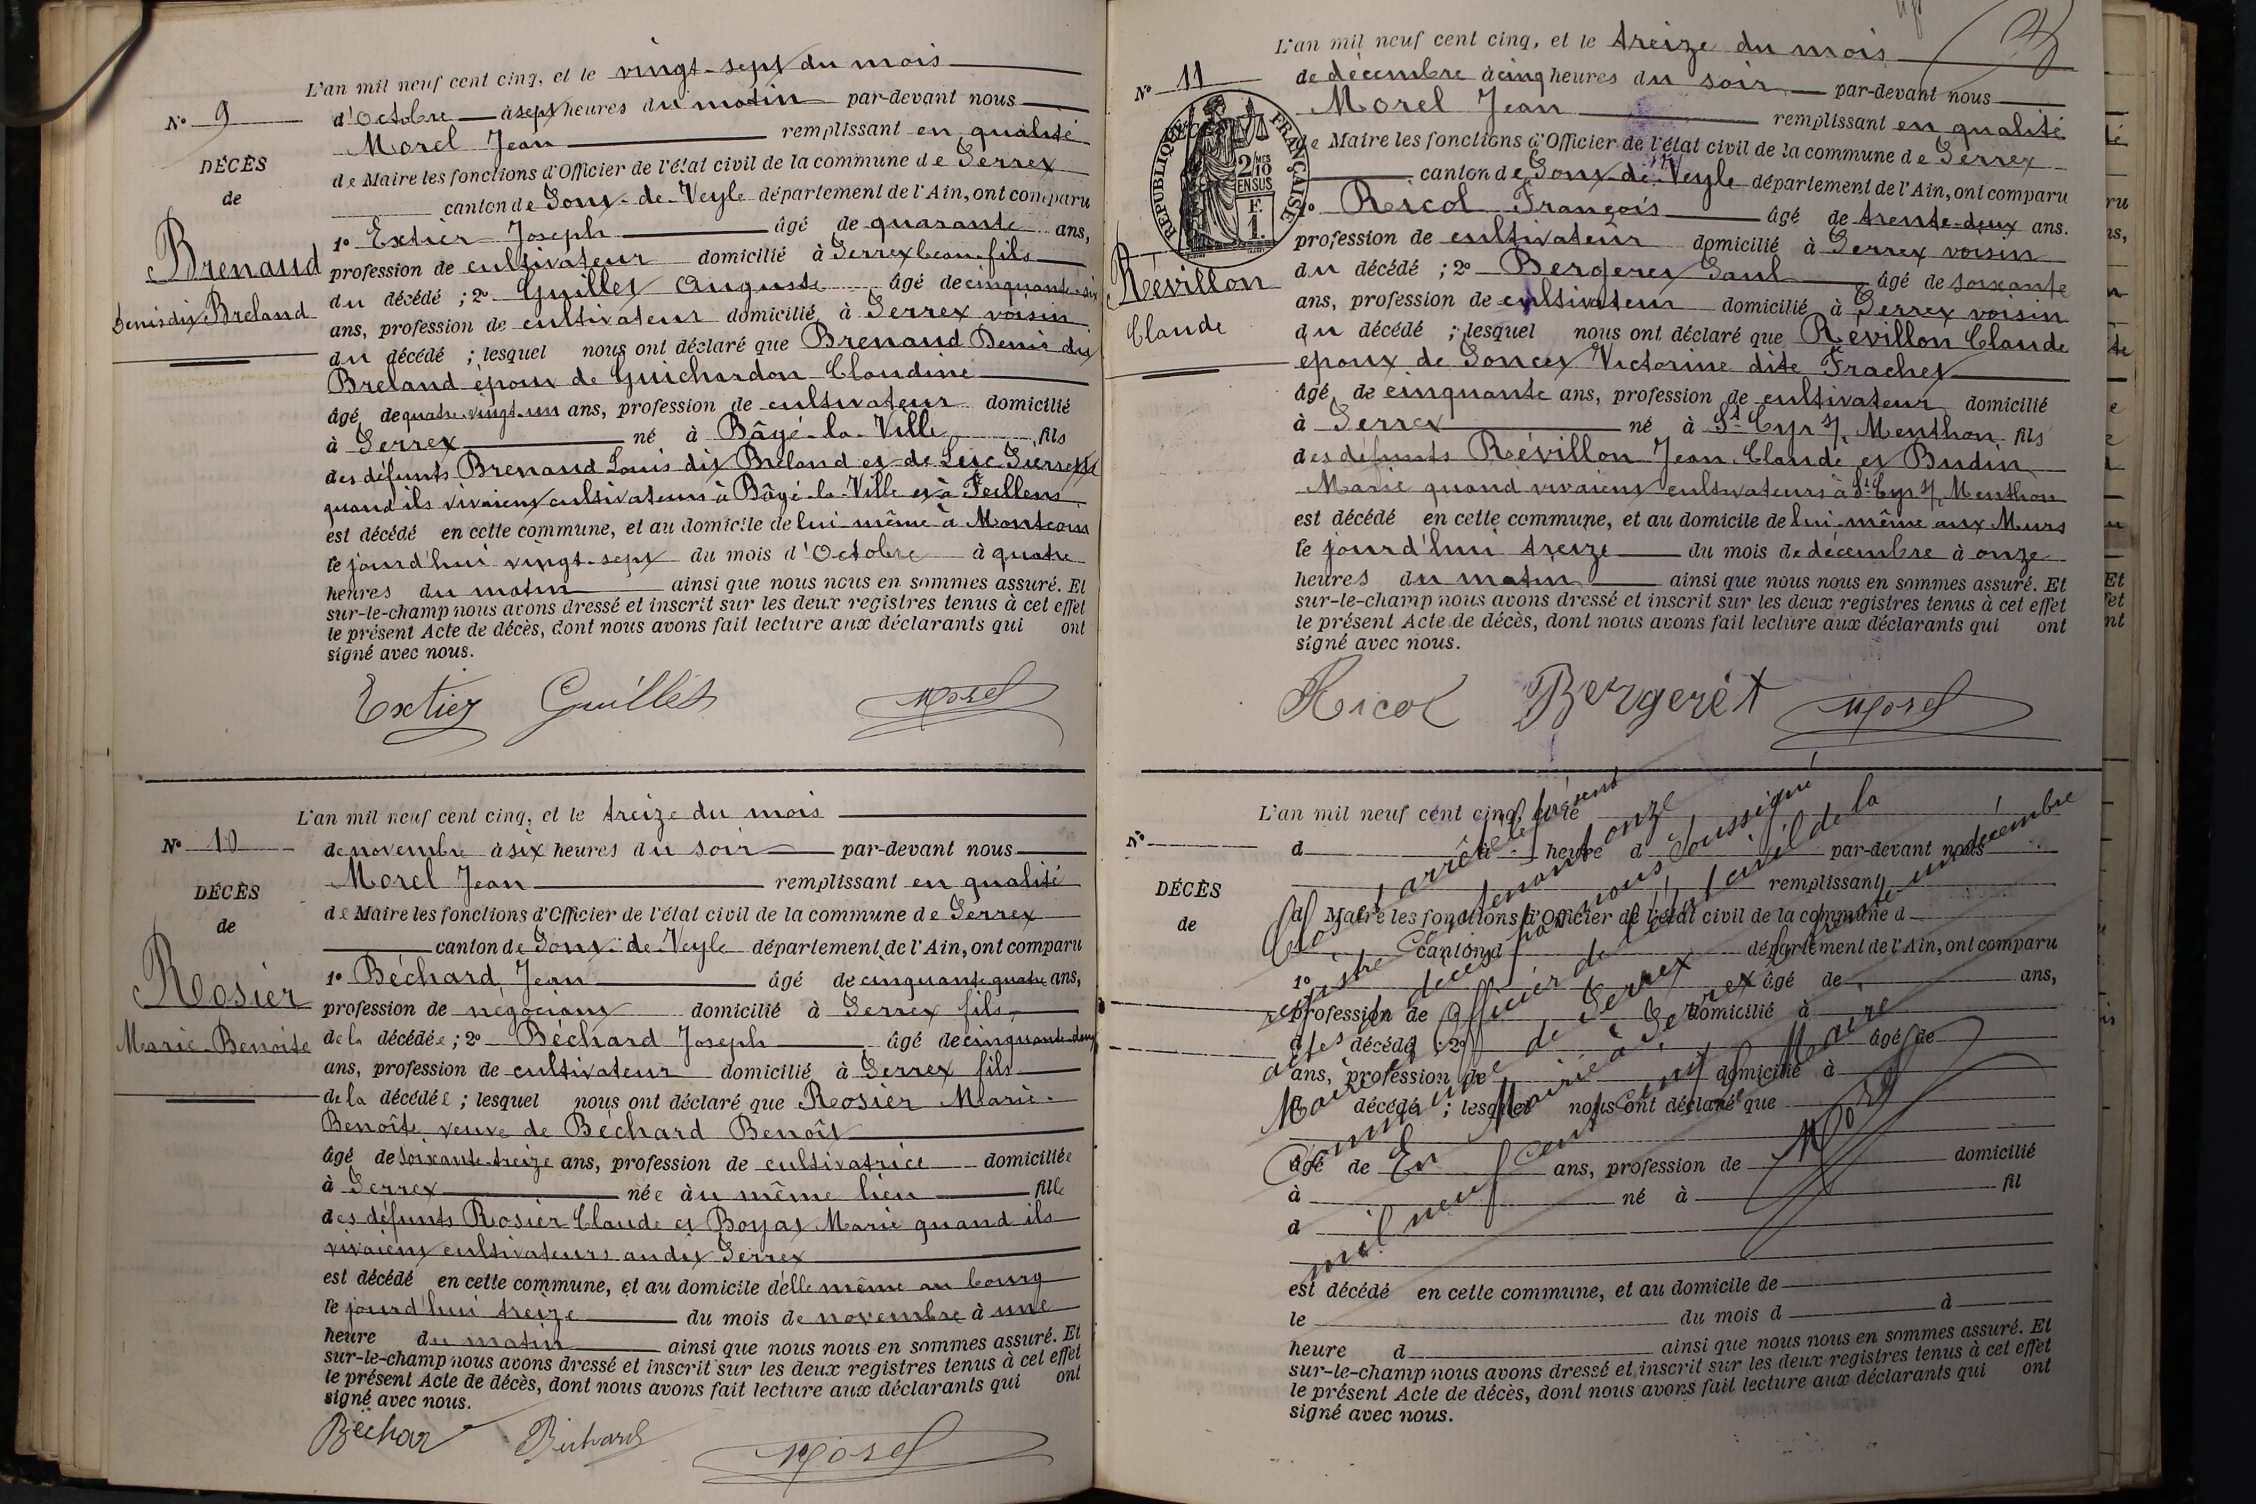 L'an mil neuf cent cinq, et le vingt-sept du mois
N° 9
d'Octobre à sept heures du matin par-devant nous
Morel Jean remplissant en qualité
DÉCÈS
de Maire les fonctions d'Officier de l'état civil de la commune de Perrex
de
canton de Pont-de-Veyle département de l'Ain, ont comparu
1° Extier Joseph âgé de quarante ans,
Brenaud
profession de cultivateur domicilié à Perrex beau-fils
Denis dit Breland
du décédé ; 2° Guillet Auguste âgé de cinquante-six
ans, profession de cultivateur domicilié à Perrex voisin
du décédé ; lesquel nous ont déclaré que Brenaud Denis dit
Breland époux de Guichardon Claudine
âgé de quatre-vingt-un ans, profession de cultivateur domicilié
à Perrex né à Bâgé-la-Ville fils
des défunts Brenaud Louis dit Breland et de Luc Pierrette
quand ils vivaient cultivateurs à Bâgé-la-Ville et à Feillens
est décédé en cette commune, et au domicile de lui-même à Montcour
le jourd'hui vingt-sept du mois d'Octobre à quatre
heures du matin ainsi que nous nous en sommes assuré. Et
sur-le-champ nous avons dressé et inscrit sur les deux registres tenus à cet effet
le présent Acte de décès, dont nous avons fait lecture aux déclarants qui ont
signé avec nous.
Extier Guillet Morel
L'an mil neuf cent cinq, et le treize du mois
N° 10
de novembre à six heures du soir par-devant nous
Morel Jean remplissant en qualité
DÉCÈS
de Maire les fonctions d'Officier de l'état civil de la commune de Perrex
de
canton de Pont-de-Veyle département de l'Ain, ont comparu
1° Béchard Jean âgé de cinquante-quatre ans,
Rosier
profession de négociant domicilié à Perrex fils
Marie-Benoite
de la décédée ; 2° Béchard Joseph âgé de cinquante-deux
ans, profession de cultivateur domicilié à Perrex fils
de la décédée ; lesquel nous ont déclaré que Rosier Marie-
Benoîte veuve de Bechard Benoît
âgé de soixante-treize ans, profession de cultivatrice domiciliée
à Perrex née au même lieu fille
des défunts Rosier Claude et Boyat Marie quand ils
vivaient cultivateurs audit Perrex
est décédé en cette commune, et au domicile d'elle même au bourg
le jourd'hui treize du mois de novembre à une
heure du matin ainsi que nous nous en sommes assuré. Et
sur-le-champ nous avons dressé et inscrit sur les deux registres tenus à cet effet
le présent Acte de décès, dont nous avons fait lecture aux déclarants qui ont
signé avec nous.
Béchar Béchard Morel
L'an mil neuf cent cinq, et le treize du mois
N° 11
de décembre à cinq heures du soir par-devant nous
Morel Jean remplissant en qualité
de Maire les fonctions d'Officier de l'état civil de la commune de Perrex
canton de Pont-de-Veyle département de l'Ain, ont comparu
RÉPUBLIQUE FRANÇAISE
2/10 MES
EN SUS
F.
1.
1° Ricol François âgé de trente-deux ans.
profession de cultivateur domicilié à Perrex voisin
Révillon
Claude
du décédé ; 2° Bergeret Paul âgé de soixante
ans, profession de cultivateur domicilié à Perrex voisin
du décédé ; lesquel nous ont déclaré que Révillon Claude
époux de Poncet Victorine dite Frachet
âgé de cinquante ans, profession de cultivateur domicilié
à Perrex né à St Cyr s/ Menthon fils
des défunts Révillon Jean Claude et Budin
Marie quand vivaient cultivateurs à St Cyr s/ Menthon
est décédé en cette commune, et au domicile de lui-même aux Murs
le jourd'hui treize du mois de décembre à onze
heures du matin ainsi que nous nous en sommes assuré. Et
sur-le-champ nous avons dressé et inscrit sur les deux registres tenus à cet effet
le présent Acte de décès, dont nous avons fait lecture aux déclarants qui ont
signé avec nous.
Ricol Bergeret Morel
L'an mil neuf cent cinq, et le
N°
d à heure d par-devant nous
remplissant
DÉCÈS
d Maire les fonctions d'Officier de l'état civil de la commune d
de
canton d département de l'Ain, ont comparu
1° âgé de ans,
profession de domicilié à
d décédé ; 2° âgé de
ans, profession de domicilié à
d décédé ; lesquel nous ont déclaré que
âgé de ans, profession de domicilié
à né à fil
d
est décédé en cette commune, et au domicile de
le du mois d à
heure d ainsi que nous nous en sommes assuré. Et
sur-le-champ nous avons dressé et inscrit sur les deux registres tenus à cet effet
le présent Acte de décès, dont nous avons fait lecture aux déclarants qui ont
signé avec nous.
Clos et arrêté le présent
registre contenant onze
actes de décès par nous soussigné
Maire Officier de l'état civil de la
Commune de Perrex
En Mairie à Perrex le trente-un décembre
mil neuf cent cinq Le Maire
Morel